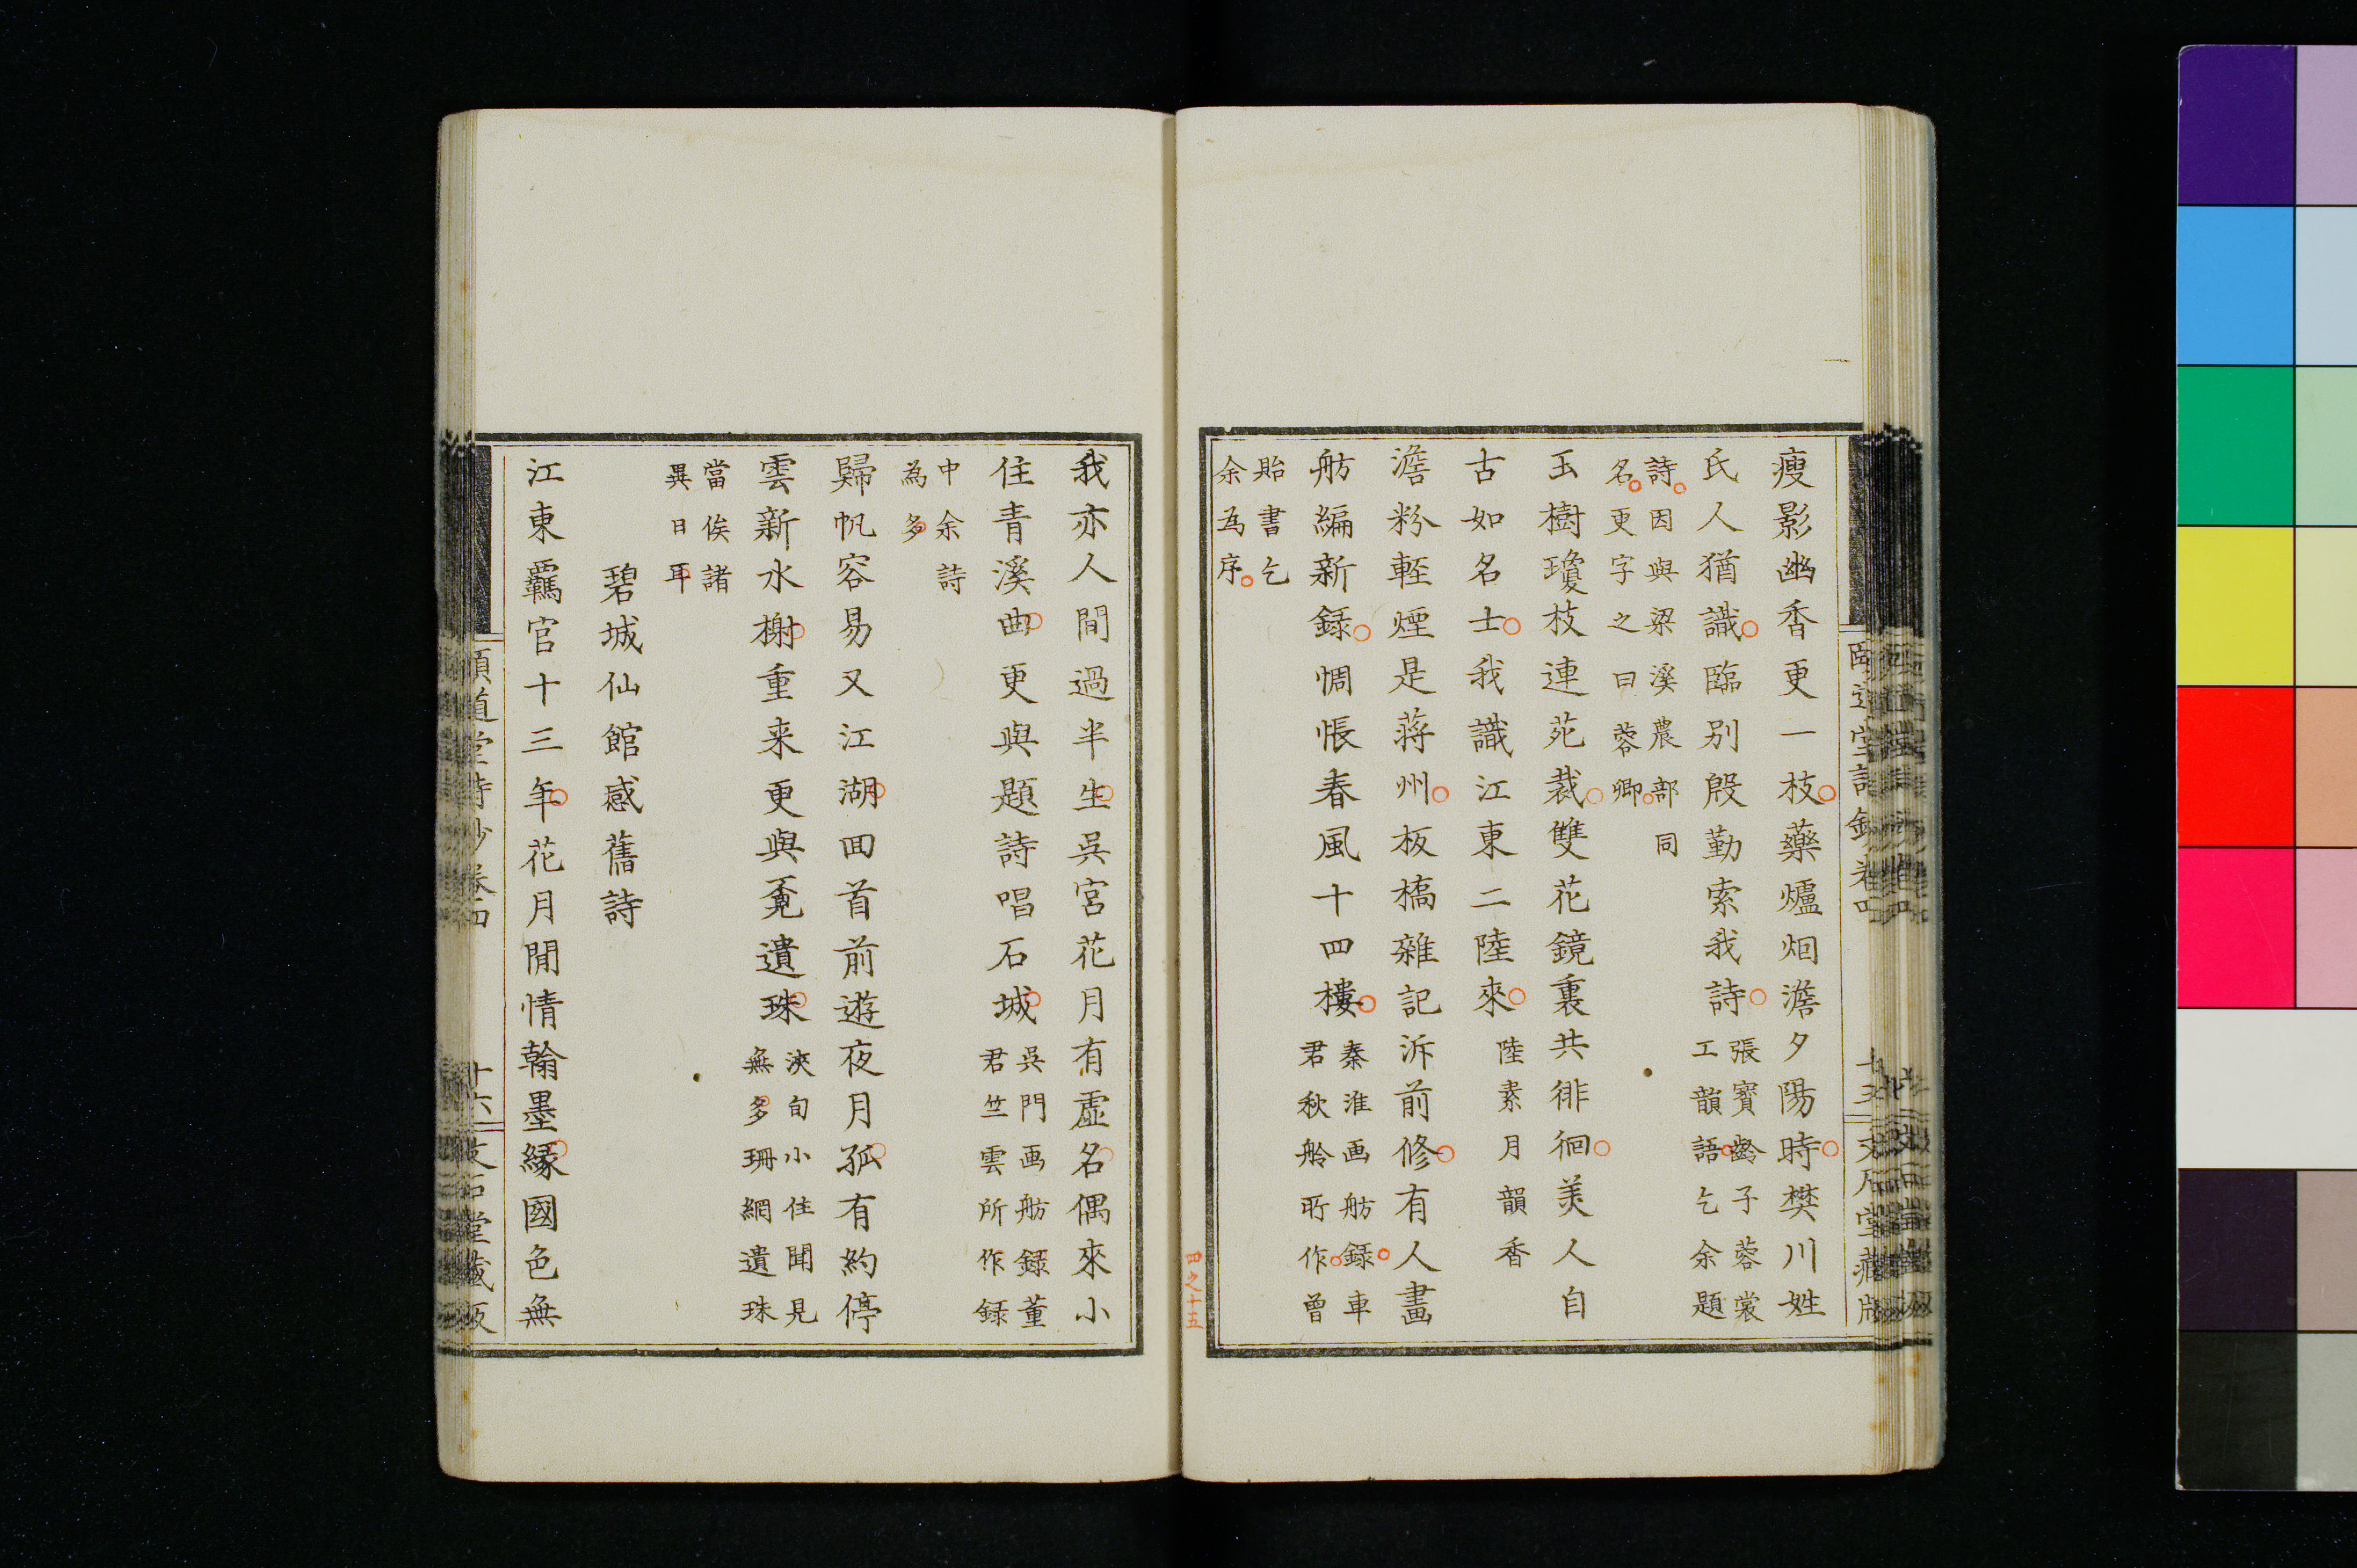 瘦影幽香更一枝藥爐烟澹夕陽時樊川姓
氏人猶識臨别殷勤索我詩
張寶齡子蓉裳
工韻語乞余題
詩因與梁溪農部同
名更字之曰蓉卿
玉樹瓊枝連苑裁雙花鏡裏共徘徊美人自
古如名士我識江東二陸來
陸素月韻香
澹粉輕煙是蔣州板橋雜記泝前修有人畫
舫編新録惆悵春風十四樓
秦淮画舫録車
君秋舲所作曾
貽書乞
余為序
四之十五
我亦人間過半生吳宮花月有虛名偶來小
住青溪曲更與題詩唱石城
吳門画舫録董
君竺雲所作録
中余詩
為多
歸帆容易又江湖回首前遊夜月孤有約停
雲新水榭重来更與覓遺珠
浹旬小住聞見
無多珊網遺珠
當俟諸
異日耳
碧城仙館感舊詩
江東羈官十三年花月閒情翰墨緣國色無
頤道堂詩鈔卷四
十六